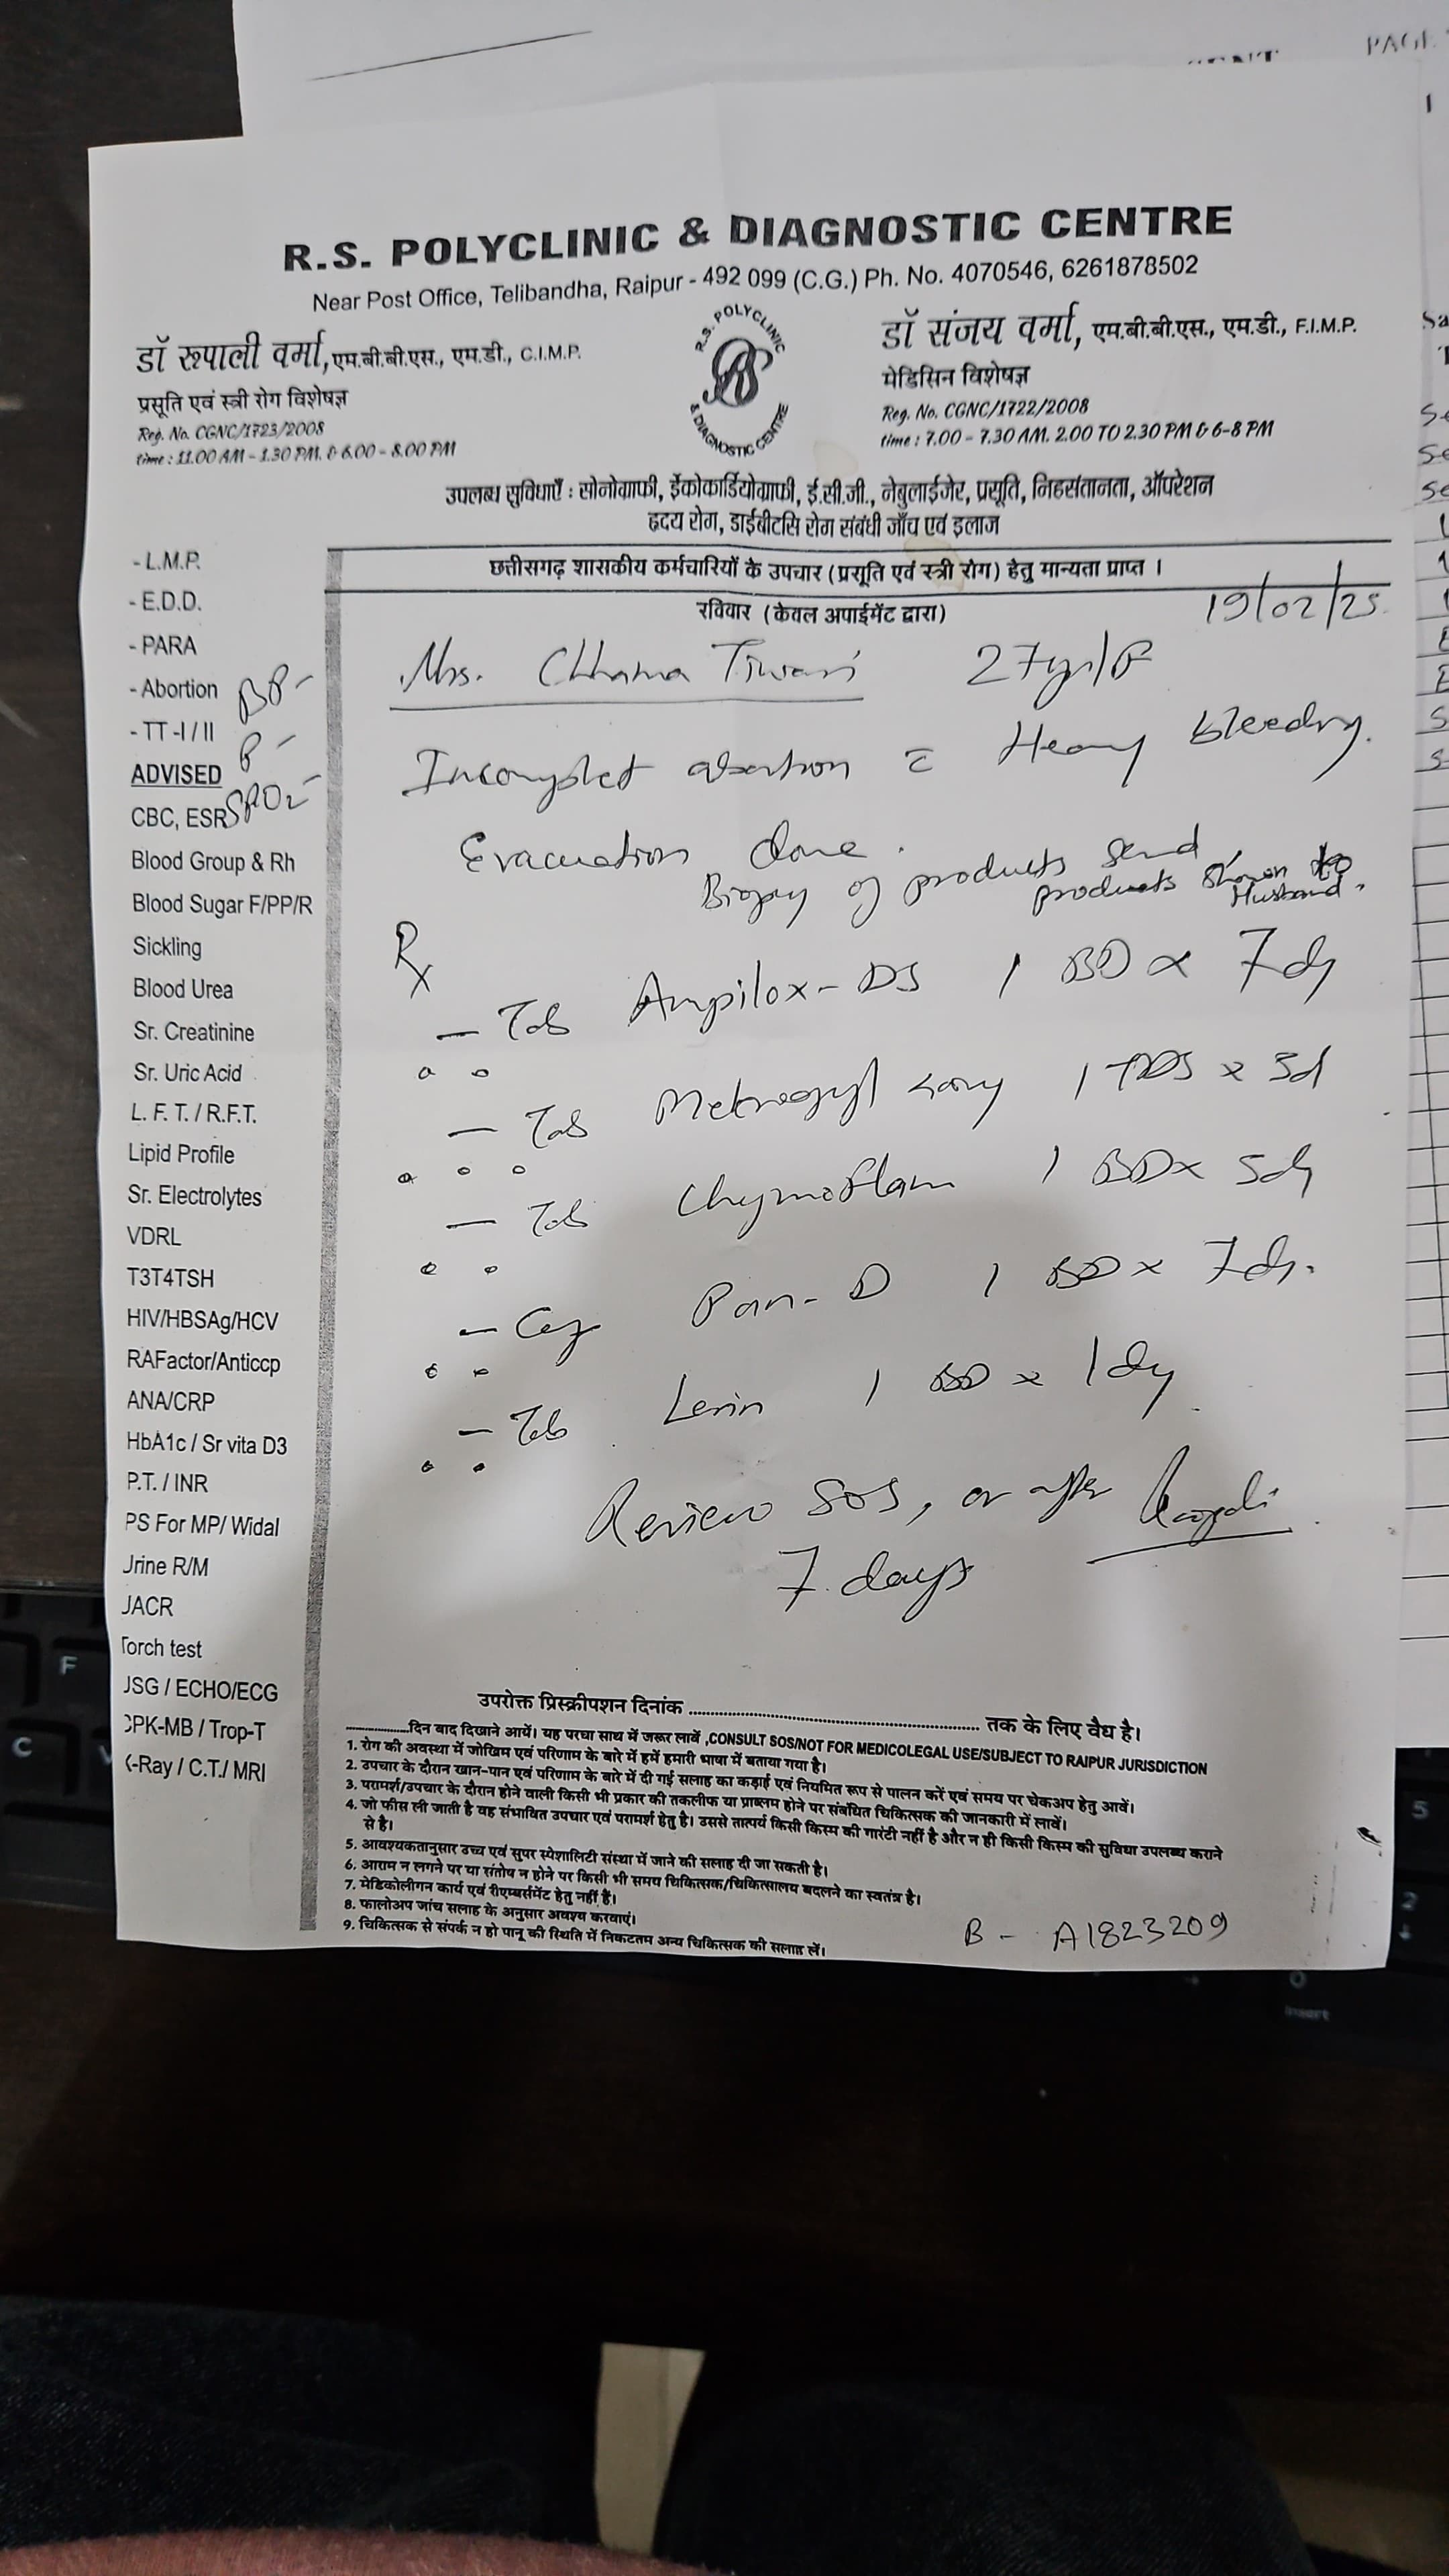 PAGE
R.S. POLYCLINIC & DIAGNOSTIC CENTRE
Near Post Office, Telibandha, Raipur - 492 099 (C.G.) Ph. No. 4070546, 6261878502
डॉ रूपाली वर्मा, एम.बी.बी.एस., एम.डी., C.I.M.P.
प्रसूति एवं स्त्री रोग विशेषज्ञ
Reg. No. CGNC/1723/2008
time : 11.00 AM - 1.30 PM. & 6.00 - 8.00 PM
R.S. POLYCLINIC
& DIAGNOSTIC CENTRE
डॉ संजय वर्मा, एम.बी.बी.एस., एम.डी., F.I.M.P.
मेडिसिन विशेषज्ञ
Reg. No. CGNC/1722/2008
time : 7.00 - 7.30 AM. 2.00 TO 2.30 PM & 6-8 PM
उपलब्ध सुविधाएँ : सोनोग्राफी, ईकोकार्डियोग्राफी, ई.सी.जी., नेबुलाईजेर, प्रसूति, निहसंतानता, ऑपरेशन
हृदय रोग, डाईबीटसि रोग संबंधी जाँच एवं इलाज
छत्तीसगढ़ शासकीय कर्मचारियों के उपचार (प्रसूति एवं स्त्री रोग) हेतु मान्यता प्राप्त ।
रविवार (केवल अपाईमेंट द्वारा)
19/02/25
- L.M.P.
- E.D.D.
- PARA
- Abortion BP-
- TT -I / II P-
ADVISED
CBC, ESR SPO2-
Blood Group & Rh
Blood Sugar F/PP/R
Sickling
Blood Urea
Sr. Creatinine
Sr. Uric Acid
L. F. T. / R.F.T.
Lipid Profile
Sr. Electrolytes
VDRL
T3T4TSH
HIV/HBSAg/HCV
RAFactor/Anticcp
ANA/CRP
HbA1c / Sr vita D3
P.T. / INR
PS For MP/ Widal
Jrine R/M
JACR
Torch test
JSG / ECHO/ECG
CPK-MB / Trop-T
X-Ray / C.T./ MRI
Mrs. Chhama Tiwari 27yr/F
Incomplet abortion = Heavy bleeding.
Evacuation done.
Biopsy of products send,
products shown to
Husband.
Rx
- Tab Ampilox-DS 1 BD x 7 dy
- Tab Metrogyl 1 TDS x 5d
- Tab Chymoflam 1 BD x 5dy
- Cap Pan-D 1 BD x 7dy.
- Tab 1 BD x 1dy
Review SOS, or after
7 days
उपरोक्त प्रिस्क्रीपशन दिनांक ........................ तक के लिए वैध है।
............दिन बाद दिखाने आयें। यह परचा साथ में जरूर लावें ,CONSULT SOS/NOT FOR MEDICOLEGAL USE/SUBJECT TO RAIPUR JURISDICTION
1. रोग की अवस्था में जोखिम एवं परिणाम के बारे में हमें हमारी भाषा में बताया गया है।
2. उपचार के दौरान खान-पान एवं परिणाम के बारे में दी गई सलाह का कड़ाई एवं नियमित रूप से पालन करें एवं समय पर चेकअप हेतु आवें।
3. परामर्श/उपचार के दौरान होने वाली किसी भी प्रकार की तकलीफ या प्राब्लम होने पर संबंधित चिकित्सक की जानकारी में लावें।
4. जो फीस ली जाती है वह संभावित उपचार एवं परामर्श हेतु है। उससे तात्पर्य किसी किस्म की गारंटी नहीं है और न ही किसी किस्म की सुविधा उपलब्ध कराने
से है।
5. आवश्यकतानुसार उच्च एवं सुपर स्पेशालिटी संस्था में जाने की सलाह दी जा सकती है।
6. आराम न लगने पर या संतोष न होने पर किसी भी समय चिकित्सक/चिकित्सालय बदलने का स्वतंत्र है।
7. मेडिकोलीगन कार्य एवं रीएम्बर्समेंट हेतु नहीं है।
8. फालोअप जांच सलाह के अनुसार अवश्य करवाएं।
9. चिकित्सक से संपर्क न हो पानू की स्थिति में निकटतम अन्य चिकित्सक की सलाह लें।
B - A1823209
F
C
V
5
2
0
Insert